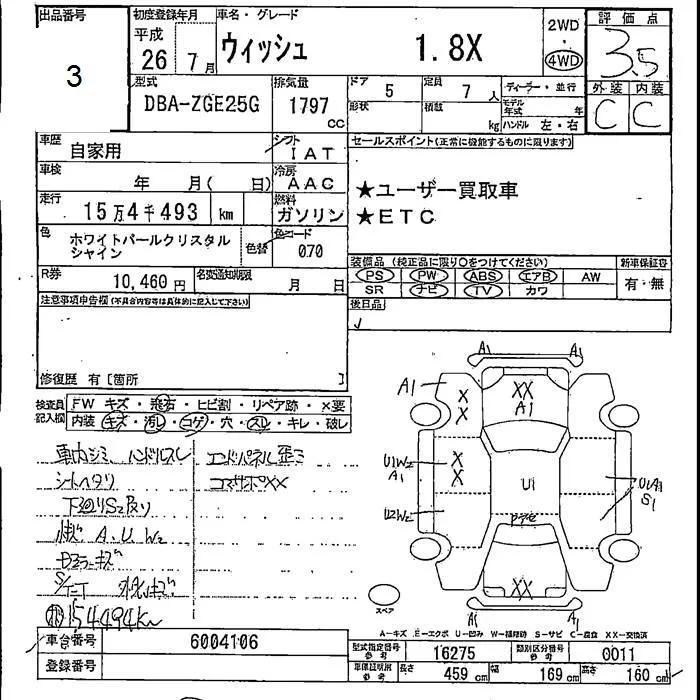 出品番号 初度登録年月 車名・グレード 2WD 評価点
3 平成 26年 7月 ウィッシュ 1.8X ・ 4WD 3.5
型式 排気量 ドア 5 定員 7人 ディーラー・並行 外装 内装
DBA-ZGE25G 1797cc 形状 積載 kg モデル年式 年 C C
ハンドル 左・右
車歴 自家用 シフト IAT セールスポイント(正常に機能するものに限ります)
車検 年 月( 日) 冷房 AAC ★ユーザー買取車
走行 15万4千493 km 燃料 ガソリン ★ETC
色 ホワイトパールクリスタルシャイン 色替 色コード 070
装備品(純正品に限り○をつけてください) 新車保証書
R券 10,460円 名変通知期限 月 日 PS PW ABS エアB AW 有・無
SR ナビ TV カワ
注意事項申告欄(不具合内容等は具体的に記入して下さい) 後日品
修復歴 有[箇所 ]
検査員記入欄 FW キズ・飛石・ヒビ割・リペア跡・×要
内装 キズ・汚レ・コゲ・穴・スレ・キレ・破レ
車内シミ ハンドルスレ エンドパネル歪ミ
シートヘタリ コアサポXX
下廻りS2
A.U.W2
154494km
A1 A1
A1 X X XX A1
U1W2 A1 X X U1 UA1 S1
U2W2
XX
A1 A1
スペア
A-キズ E-エクボ U-凹み W-補修跡 S-サビ C-腐食 XX-交換済
車台番号 6004106 型式指定番号 参考 16275 類別区分番号 参考 0011
登録番号 車検証明欄 参考 長さ 459cm 幅 169cm 高さ 160cm